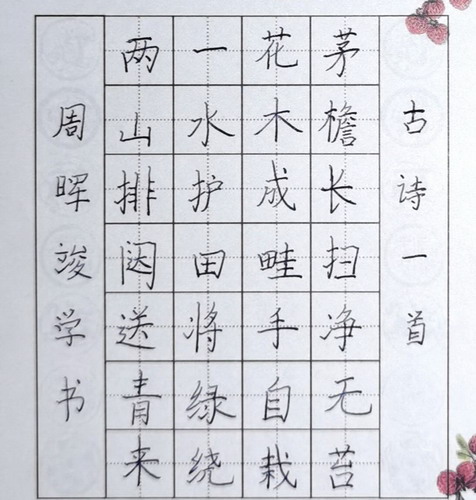 古诗一首
茅檐长扫净无苔
花木成畦手自栽
一水护田将绿绕
两山排闼送青来
周晖竣学书